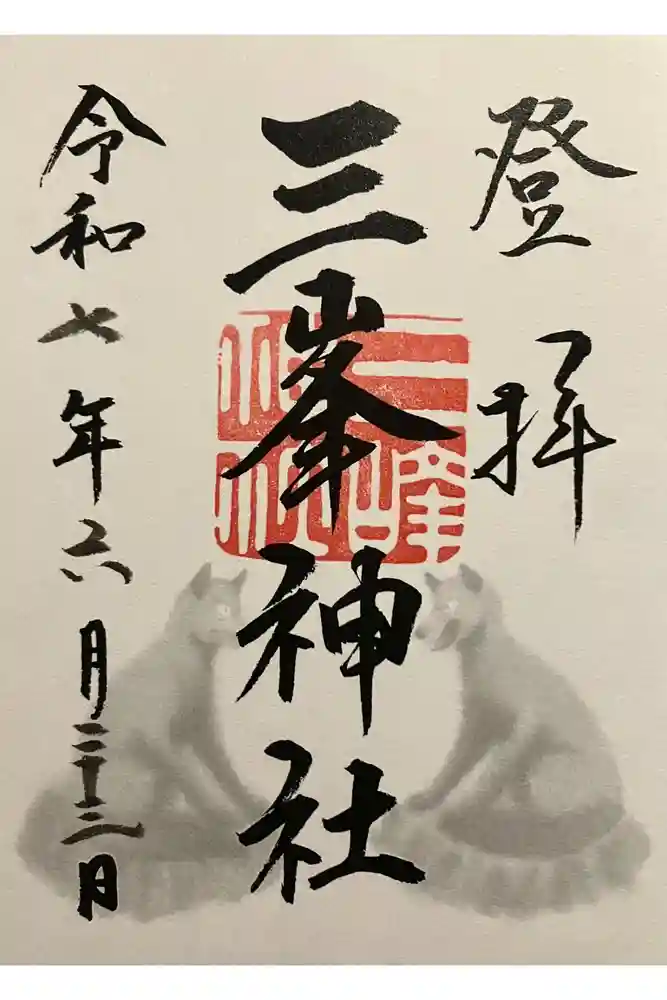 登拝
三峯神社
三峰神社
令和七年六月二十三日